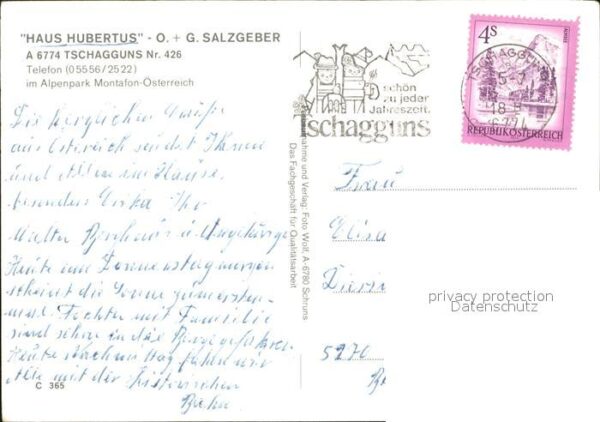 "HAUS HUBERTUS" - O. + G. SALZGEBER
A 6774 TSCHAGGUNS Nr. 426
Telefon (05556/2522)
im Alpenpark Montafon-Österreich
Die herzlichen Grüße
aus Österreich sendet Ihnen
und Allen im Hause,
besonders Erika Ihr
Walter Berghaus u Angehörige
Heute am Donnerstagmorgen
scheint die Sonne
Tochter mit Familie
sind schon in die Berge gefahren
Heute Nachmittag fahren wir
Alle mit der Historischen
Bahn
C 365
Aufnahme und Verlag: Foto Wolf, A-6780 Schruns
Das Fachgeschäft für Qualitätsarbeit
schön
zu jeder
Jahreszeit.
tschagguns
4S
REPUBLIK ÖSTERREICH
TSCHAGGUNS
18-8
6774
Frau
Elisa
Dierin
5276
privacy protection
Datenschutz